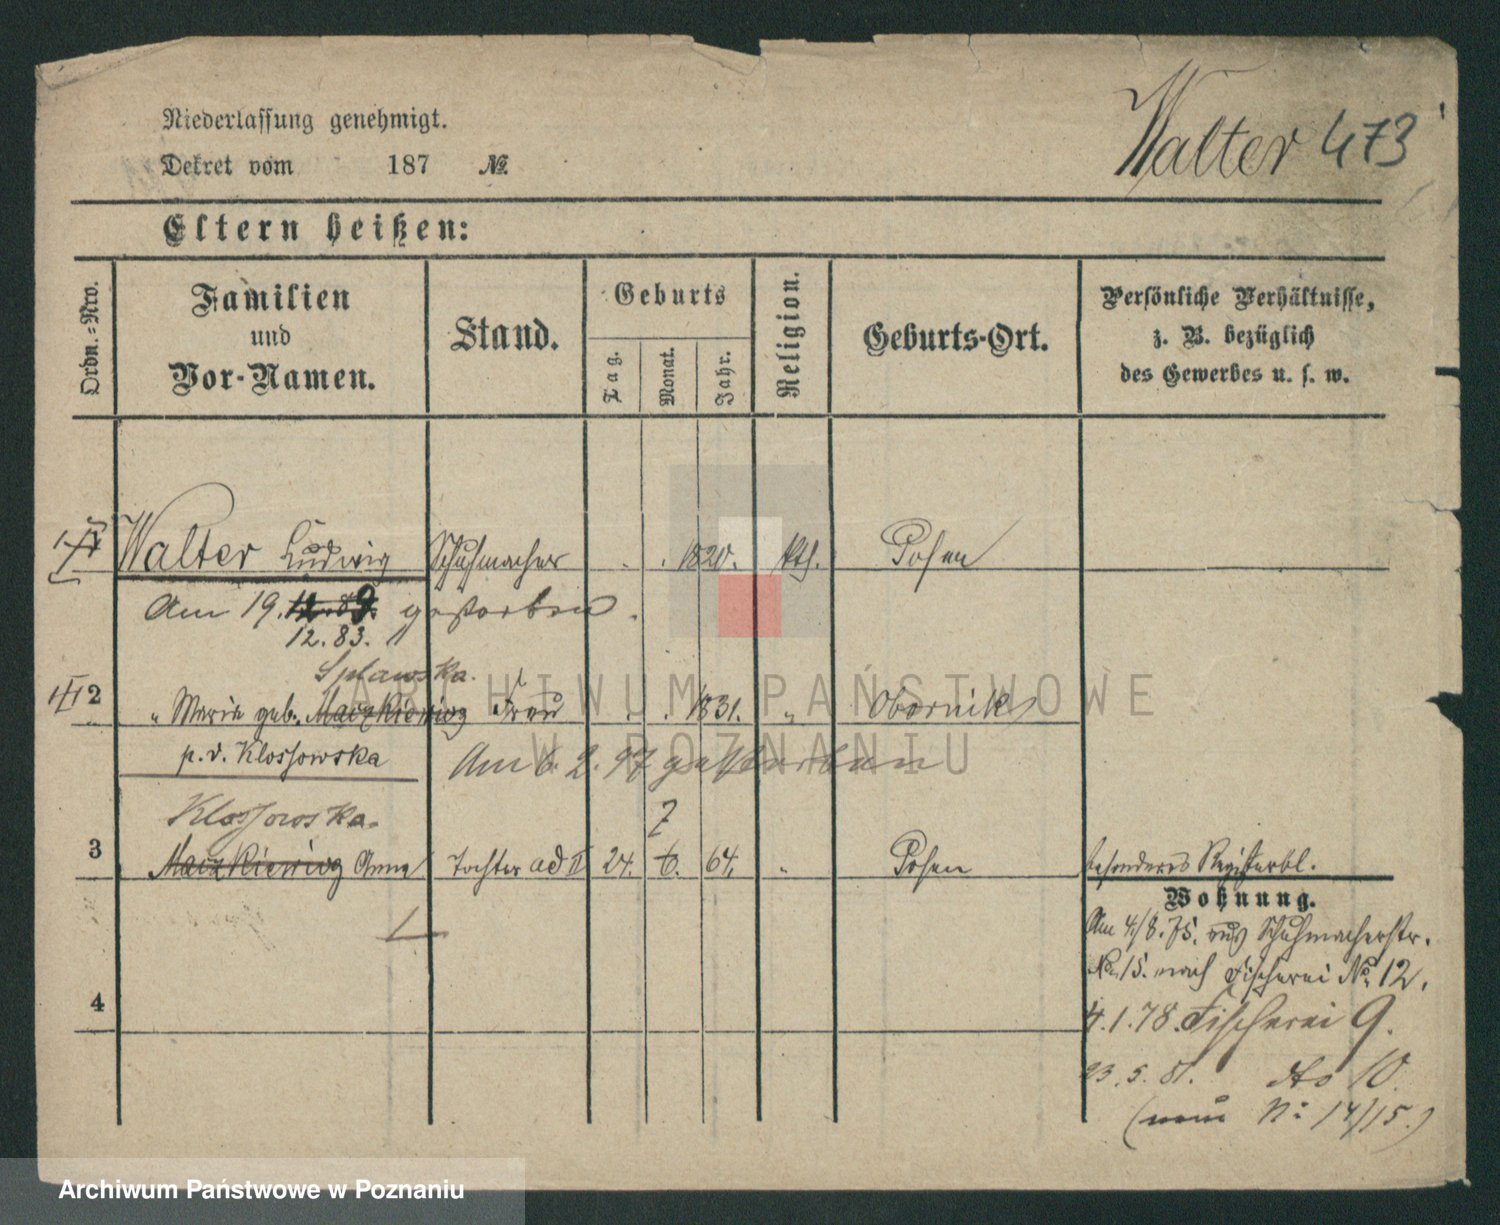 Niederlassung genehmigt.
Dekret vom 187 №
Walter 473
Eltern heißen:
Ordn.=Nro.
Familien
und
Vor-Namen.
Stand.
Geburts
Tag.
Monat.
Jahr.
Religion.
Geburts-Ort.
Persönliche Verhältnisse,
z. B. bezüglich
des Gewerbes u. s. w.
Walter Ludwig Schuhmacher . . 1820. kth. Posen
Am 19. 12. 89. gestorben.
12. 83.
Splawska.
2 " Maria geb. Maczkiewicz Frau . . 1831. " Obornik
p. v. Klossowska
Am 6. 2. 97 gestorben
Klossowska.
7
3 Maczkiewicz Anna Tochter ad II 24. 6. 64. " Posen besonderes Registerbl.
Wohnung.
Am 4/8. 75. aus Schuhmacherstr.
No. 15. nach Fischerei No. 12.
4
4. 1. 78. Fischerei 9.
23. 5. 81. dto 10.
(neu N: 14/15.)
ARCHIWUM PAŃSTWOWE
W POZNANIU
Archiwum Państwowe w Poznaniu